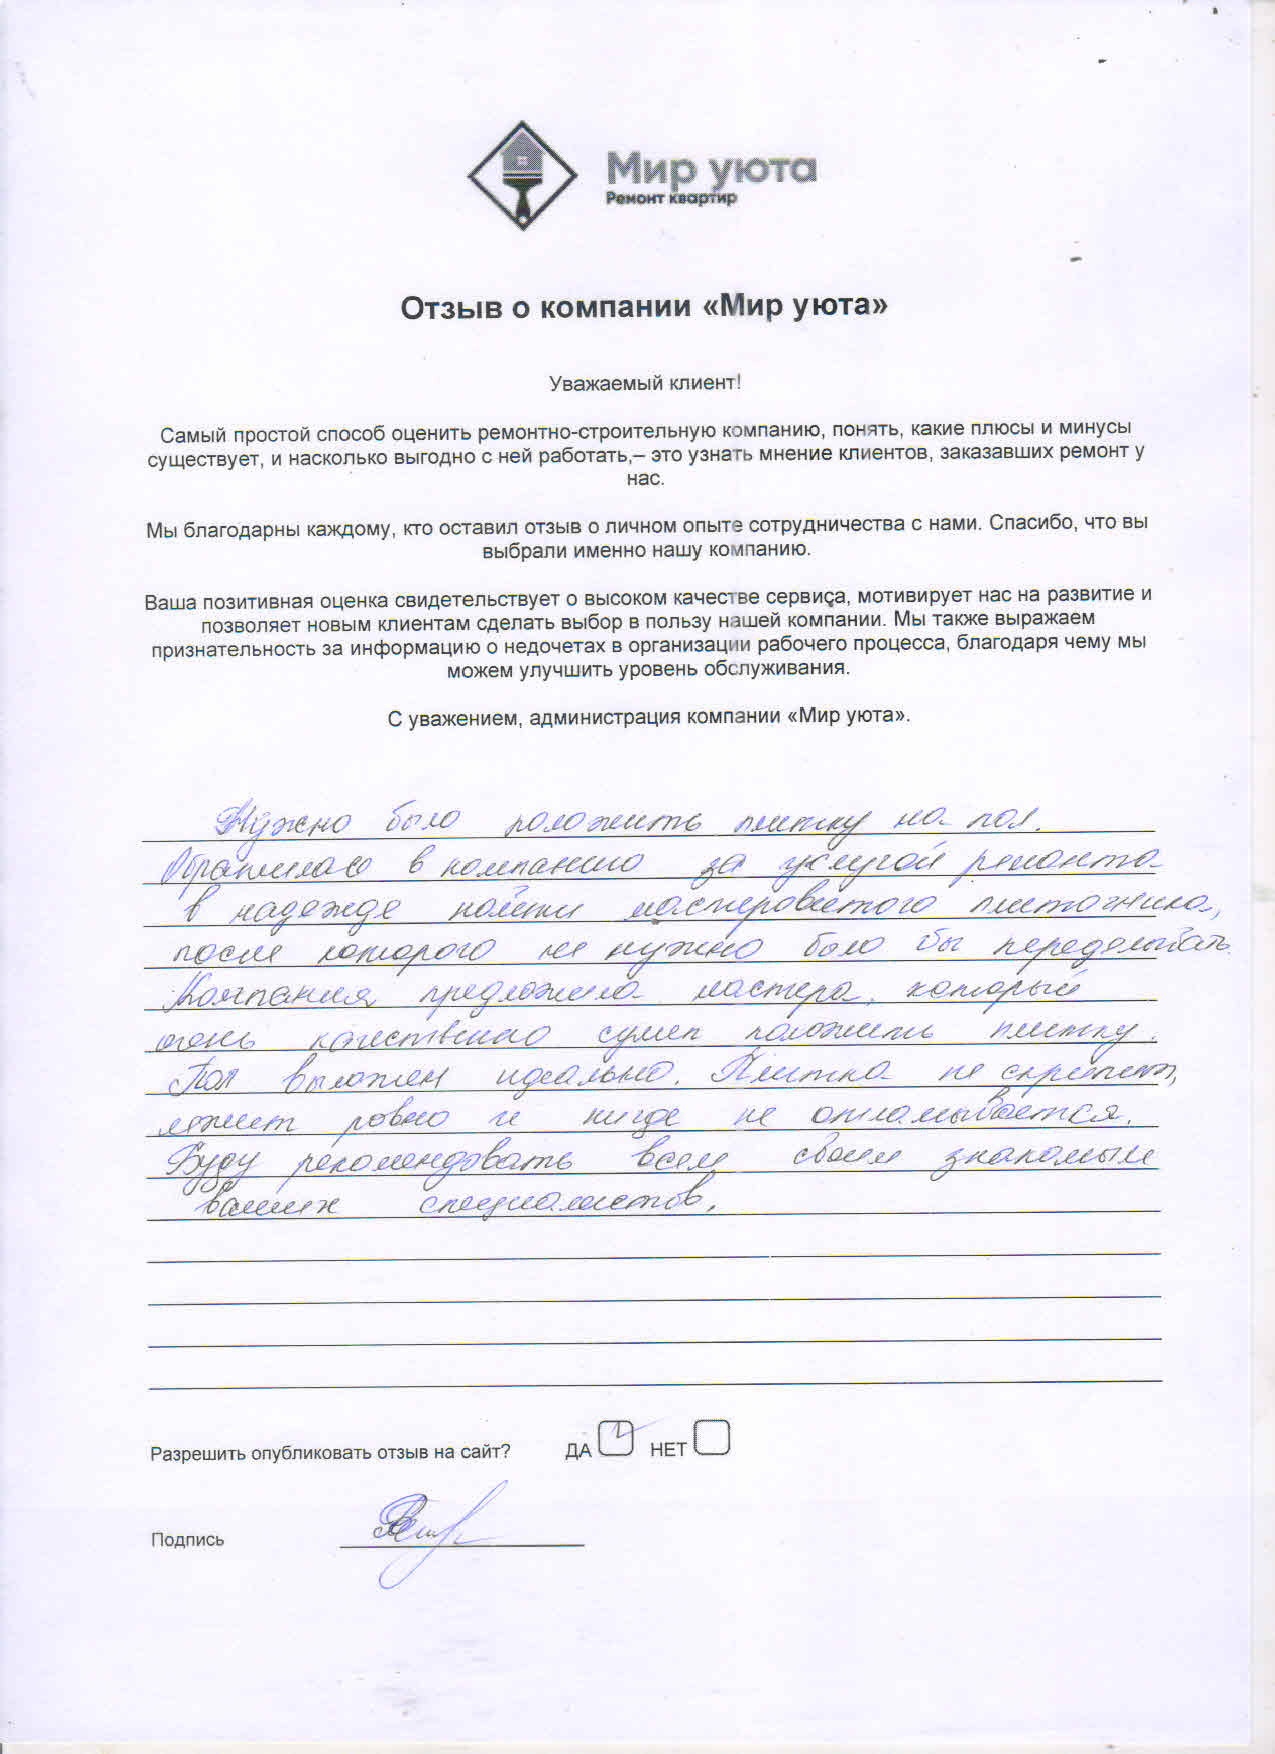 Мир уюта
Ремонт квартир
Отзыв о компании «Мир уюта»
Уважаемый клиент!
Самый простой способ оценить ремонтно-строительную компанию, понять, какие плюсы и минусы
существует, и насколько выгодно с ней работать,– это узнать мнение клиентов, заказавших ремонт у
нас.
Мы благодарны каждому, кто оставил отзыв о личном опыте сотрудничества с нами. Спасибо, что вы
выбрали именно нашу компанию.
Ваша позитивная оценка свидетельствует о высоком качестве сервиса, мотивирует нас на развитие и
позволяет новым клиентам сделать выбор в пользу нашей компании. Мы также выражаем
признательность за информацию о недочетах в организации рабочего процесса, благодаря чему мы
можем улучшить уровень обслуживания.
С уважением, администрация компании «Мир уюта».
Нужно было положить плитку на пол.
Обратилась в компанию за услугой ремонта
в надежде найти мастеровитого плиточника,
после которого не нужно было бы переделывать.
Компания предложила мастера, который
очень качественно сумел положить плитку.
Пол выложен идеально. Плитка не скрипит,
лежит ровно и нигде не отламывается.
Буду рекомендовать всем своим знакомым
ваших специалистов.
Разрешить опубликовать отзыв на сайт? ДА НЕТ
Подпись